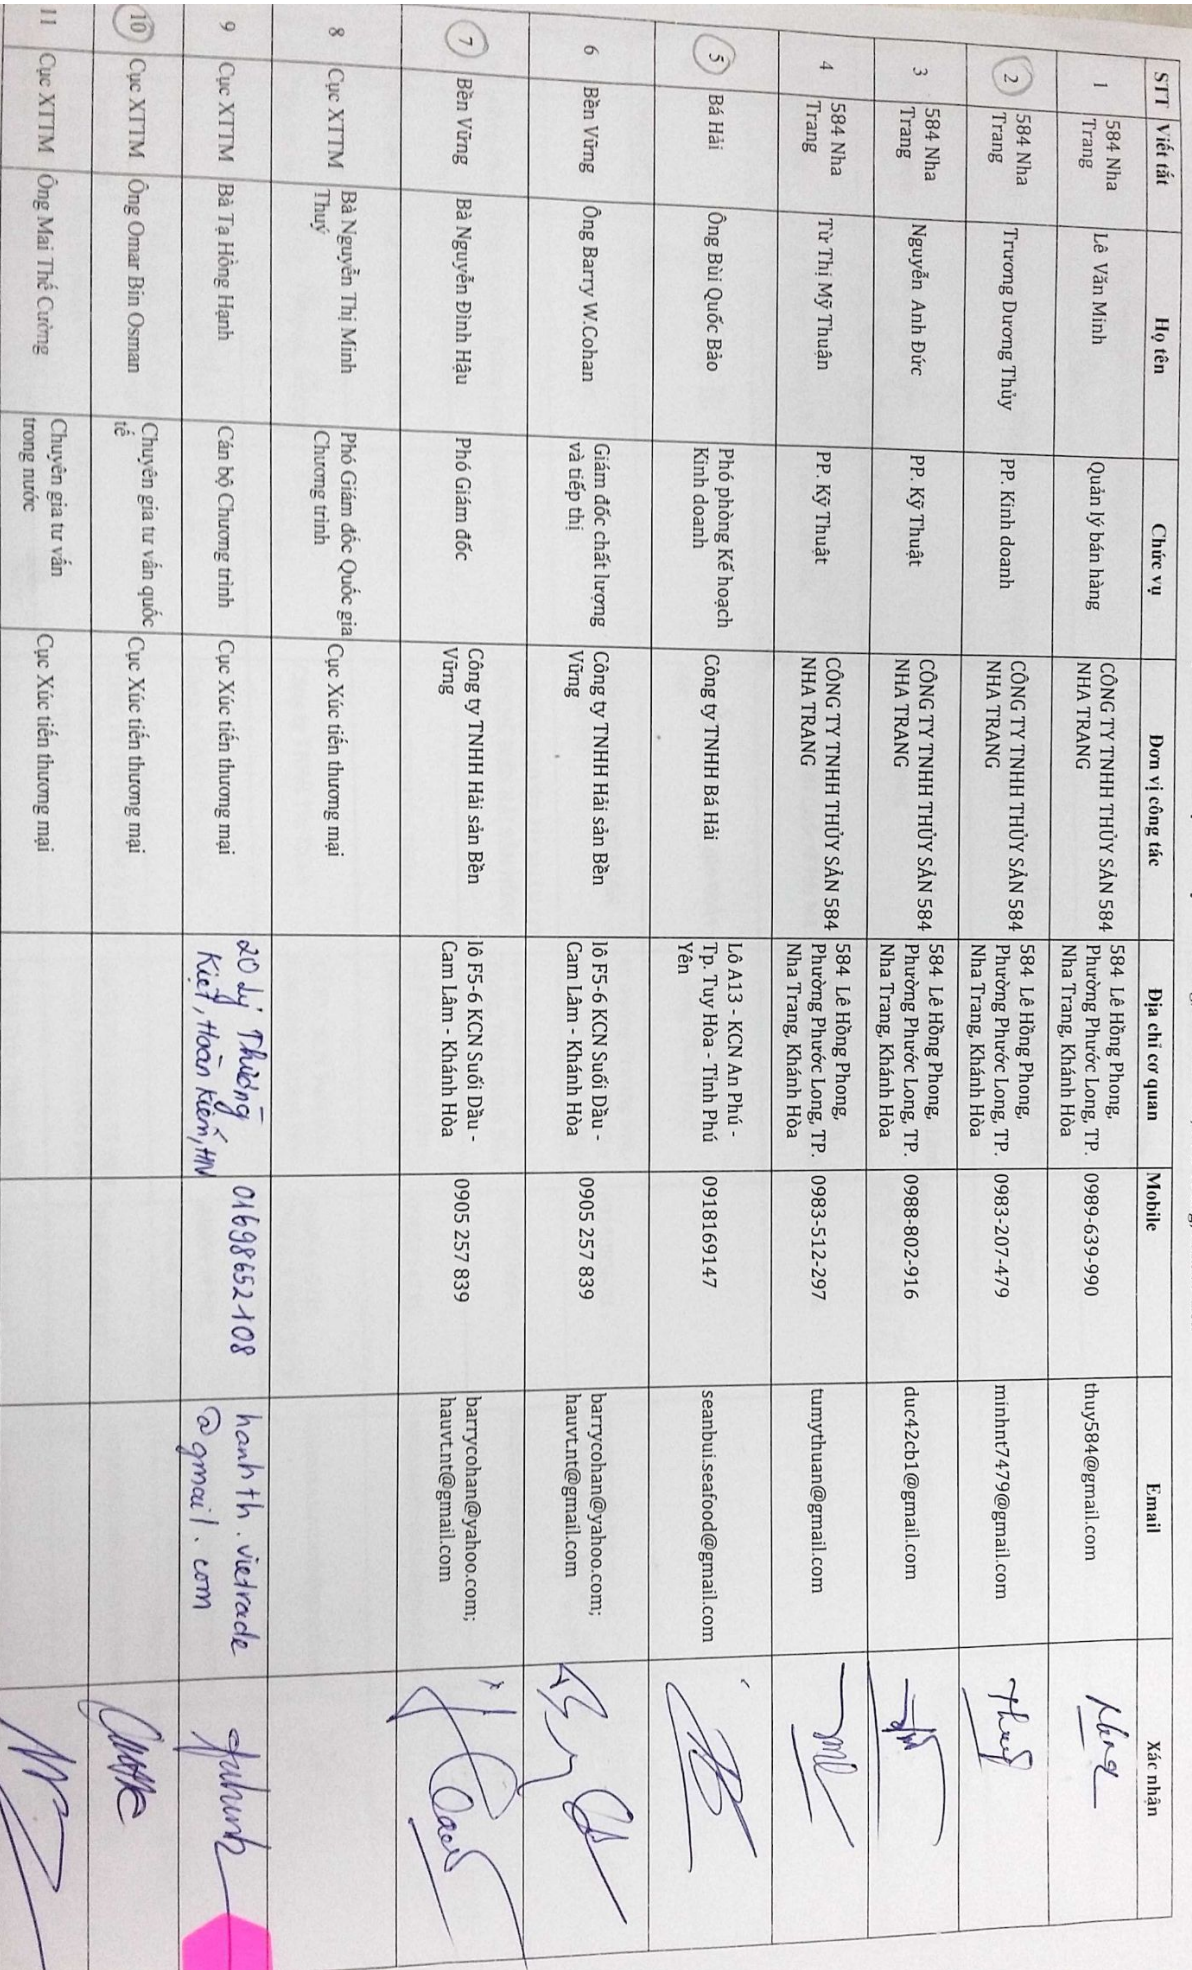 STT Viết tắt Họ tên Chức vụ Đơn vị công tác Địa chỉ cơ quan Mobile Email Xác nhận
1 584 Nha Trang Lê Văn Minh Quản lý bán hàng CÔNG TY TNHH THỦY SẢN 584 NHA TRANG 584 Lê Hồng Phong, Phường Phước Long, TP. Nha Trang, Khánh Hòa 0989-639-990 thuy584@gmail.com
2 584 Nha Trang Trương Dương Thủy PP. Kinh doanh CÔNG TY TNHH THỦY SẢN 584 NHA TRANG 584 Lê Hồng Phong, Phường Phước Long, TP. Nha Trang, Khánh Hòa 0983-207-479 minhnt7479@gmail.com
3 584 Nha Trang Nguyễn Anh Đức PP. Kỹ Thuật CÔNG TY TNHH THỦY SẢN 584 NHA TRANG 584 Lê Hồng Phong, Phường Phước Long, TP. Nha Trang, Khánh Hòa 0988-802-916 duc42cb1@gmail.com
4 584 Nha Trang Từ Thị Mỹ Thuận PP. Kỹ Thuật CÔNG TY TNHH THỦY SẢN 584 NHA TRANG 584 Lê Hồng Phong, Phường Phước Long, TP. Nha Trang, Khánh Hòa 0983-512-297 tumythuan@gmail.com
5 Bá Hải Ông Bùi Quốc Bảo Phó phòng Kế hoạch Kinh doanh Công ty TNHH Bá Hải Lô A13 - KCN An Phú - Tp. Tuy Hòa - Tỉnh Phú Yên 0918169147 seanbui.seafood@gmail.com
6 Bền Vững Ông Barry W.Cohan Giám đốc chất lượng và tiếp thị Công ty TNHH Hải sản Bền Vững lô F5-6 KCN Suối Dầu - Cam Lâm - Khánh Hòa 0905 257 839 barrycohan@yahoo.com; hauvt.nt@gmail.com
7 Bền Vững Bà Nguyễn Đình Hậu Phó Giám đốc Công ty TNHH Hải sản Bền Vững lô F5-6 KCN Suối Dầu - Cam Lâm - Khánh Hòa 0905 257 839 barrycohan@yahoo.com; hauvt.nt@gmail.com
8 Cục XTTM Bà Nguyễn Thị Minh Thuý Phó Giám đốc Quốc gia Chương trình Cục Xúc tiến thương mại
9 Cục XTTM Bà Tạ Hồng Hạnh Cán bộ Chương trình Cục Xúc tiến thương mại 20 Lý Thường Kiệt, Hoàn Kiếm, HN 01698652108 hanhth.vietrade @gmail.com
10 Cục XTTM Ông Omar Bin Osman Chuyên gia tư vấn quốc tế Cục Xúc tiến thương mại
11 Cục XTTM Ông Mai Thế Cường Chuyên gia tư vấn trong nước Cục Xúc tiến thương mại